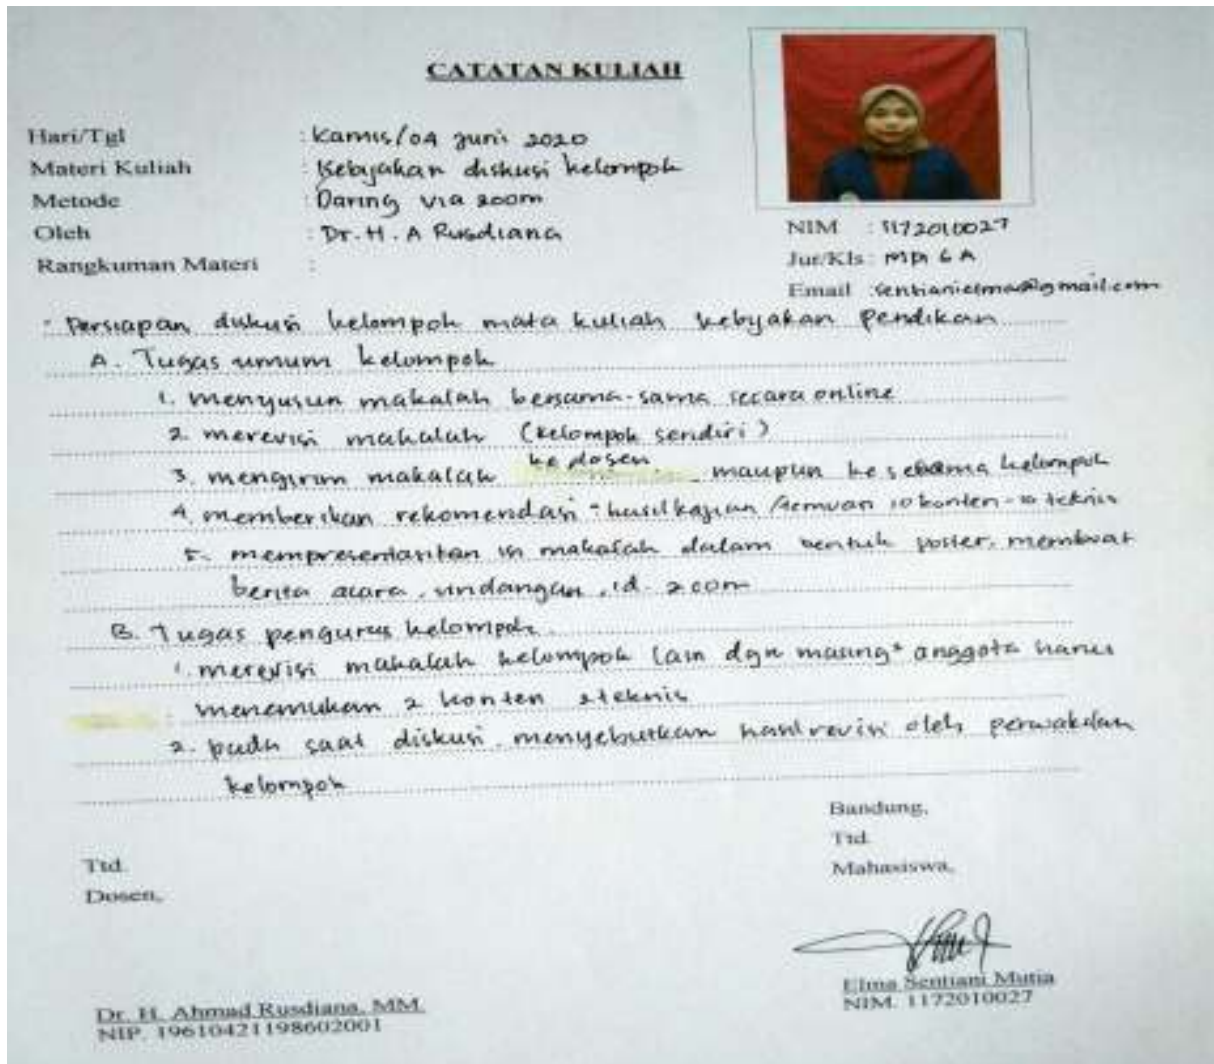 CATATAN KULIAH
Hari/Tgl : Kamis/04 Juni 2020
Materi Kuliah : Kebijakan diskusi kelompok
Metode : Daring via zoom
Oleh : Dr. H. A Rusdiana
Rangkuman Materi :
NIM : 1172010027
Jur/Kls : MPI 6 A
Email : sentianielma@gmail.com
- Persiapan diskusi kelompok mata kuliah kebijakan pendikan
A. Tugas umum kelompok
1. menyusun makalah bersama-sama secara online
2. merevisi makalah (kelompok sendiri)
3. mengirim makalah ke dosen maupun ke sesama kelompok
4. memberikan rekomendasi - hasil kajian /temuan 10 konten - 10 teknis
5. mempresentasikan isi makalah dalam bentuk poster, membuat
berita acara, undangan, id. zoom
B. Tugas pengurus kelompok
1. merevisi makalah kelompok lain dgn masing² anggota harus
menemukan 2 konten 2 teknis
2. pada saat diskusi menyebutkan hasil revisi oleh perwakilan
kelompok
Bandung,
Ttd.
Mahasiswa,
Ttd.
Dosen,
Elma Sentiani Mutia
NIM. 1172010027
Dr. H. Ahmad Rusdiana, MM.
NIP. 19610421198602001